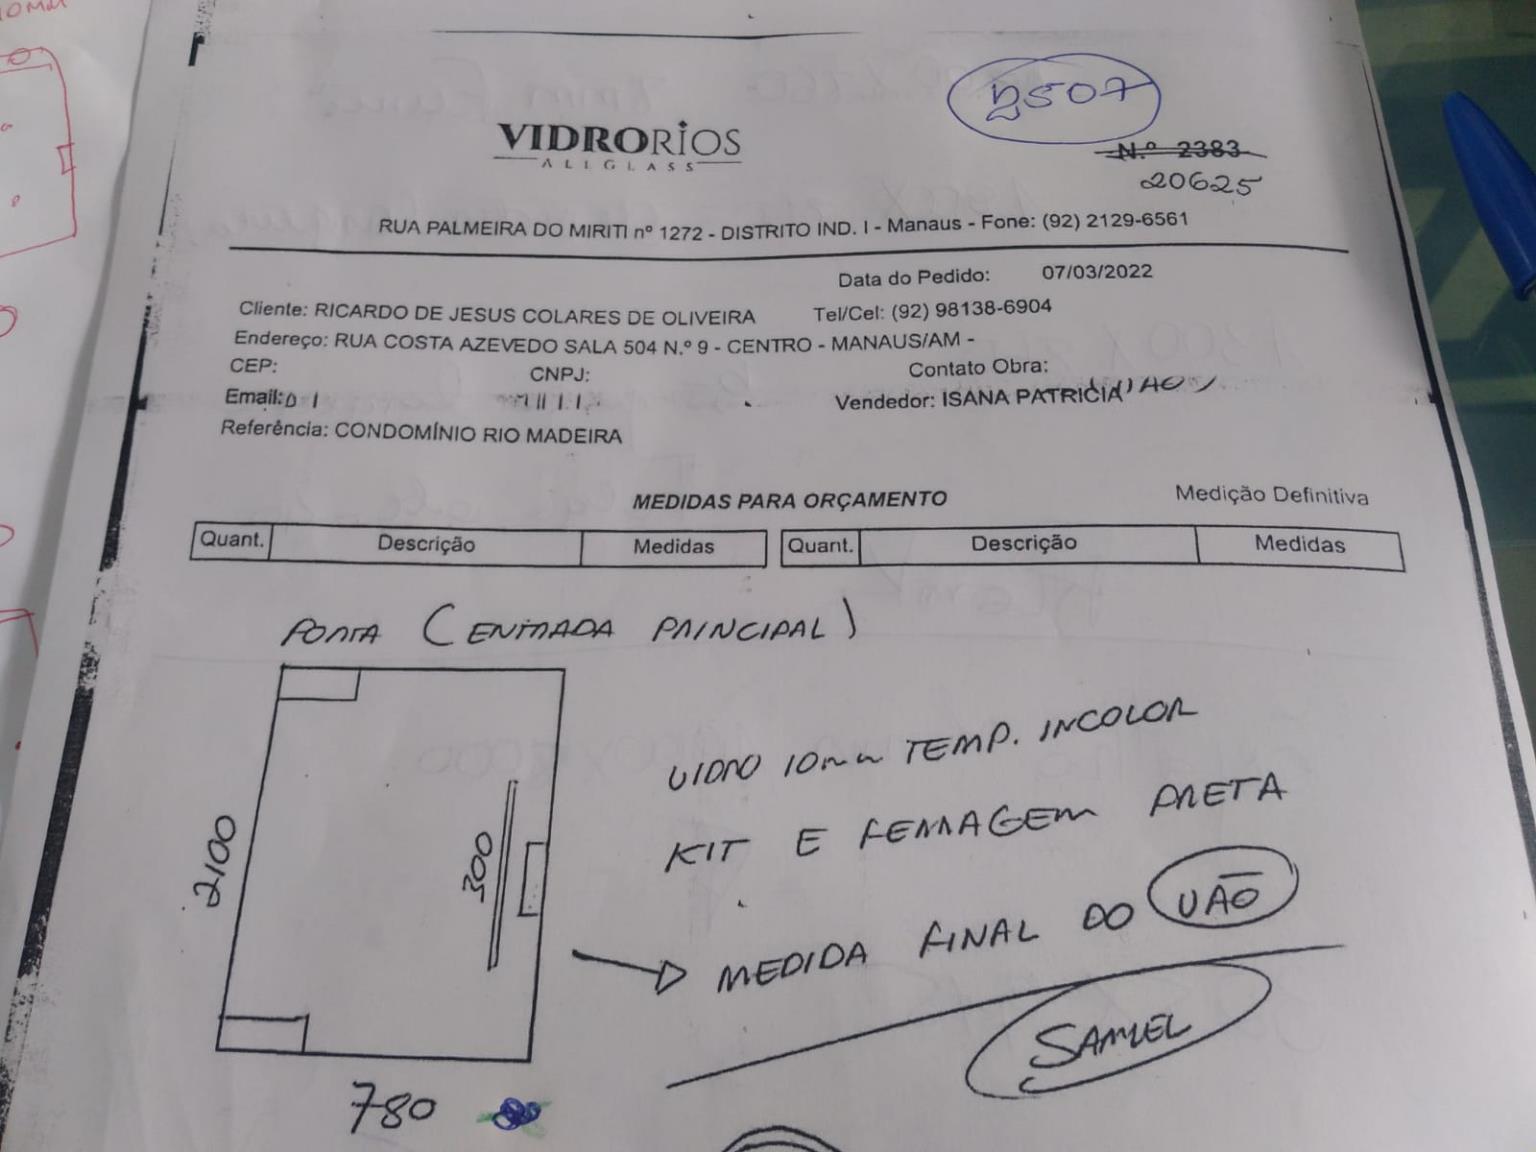 10MM
2507
VIDRORIOS
ALLGLASS
N.º 2383
20625
RUA PALMEIRA DO MIRITI nº 1272 - DISTRITO IND. I - Manaus - Fone: (92) 2129-6561
Data do Pedido: 07/03/2022
Cliente: RICARDO DE JESUS COLARES DE OLIVEIRA Tel/Cel: (92) 98138-6904
Endereço: RUA COSTA AZEVEDO SALA 504 N.º 9 - CENTRO - MANAUS/AM -
CEP: CNPJ: Contato Obra:
Email: Vendedor: ISANA PATRICIA
Referência: CONDOMÍNIO RIO MADEIRA
MEDIDAS PARA ORÇAMENTO Medição Definitiva
Quant. Descrição Medidas Quant. Descrição Medidas
PORTA (ENTRADA PRINCIPAL)
VIDRO 10mm TEMP. INCOLOR
KIT E FERRAGEM PRETA
2100
300
MEDIDA FINAL DO VÃO
SAMUEL
780